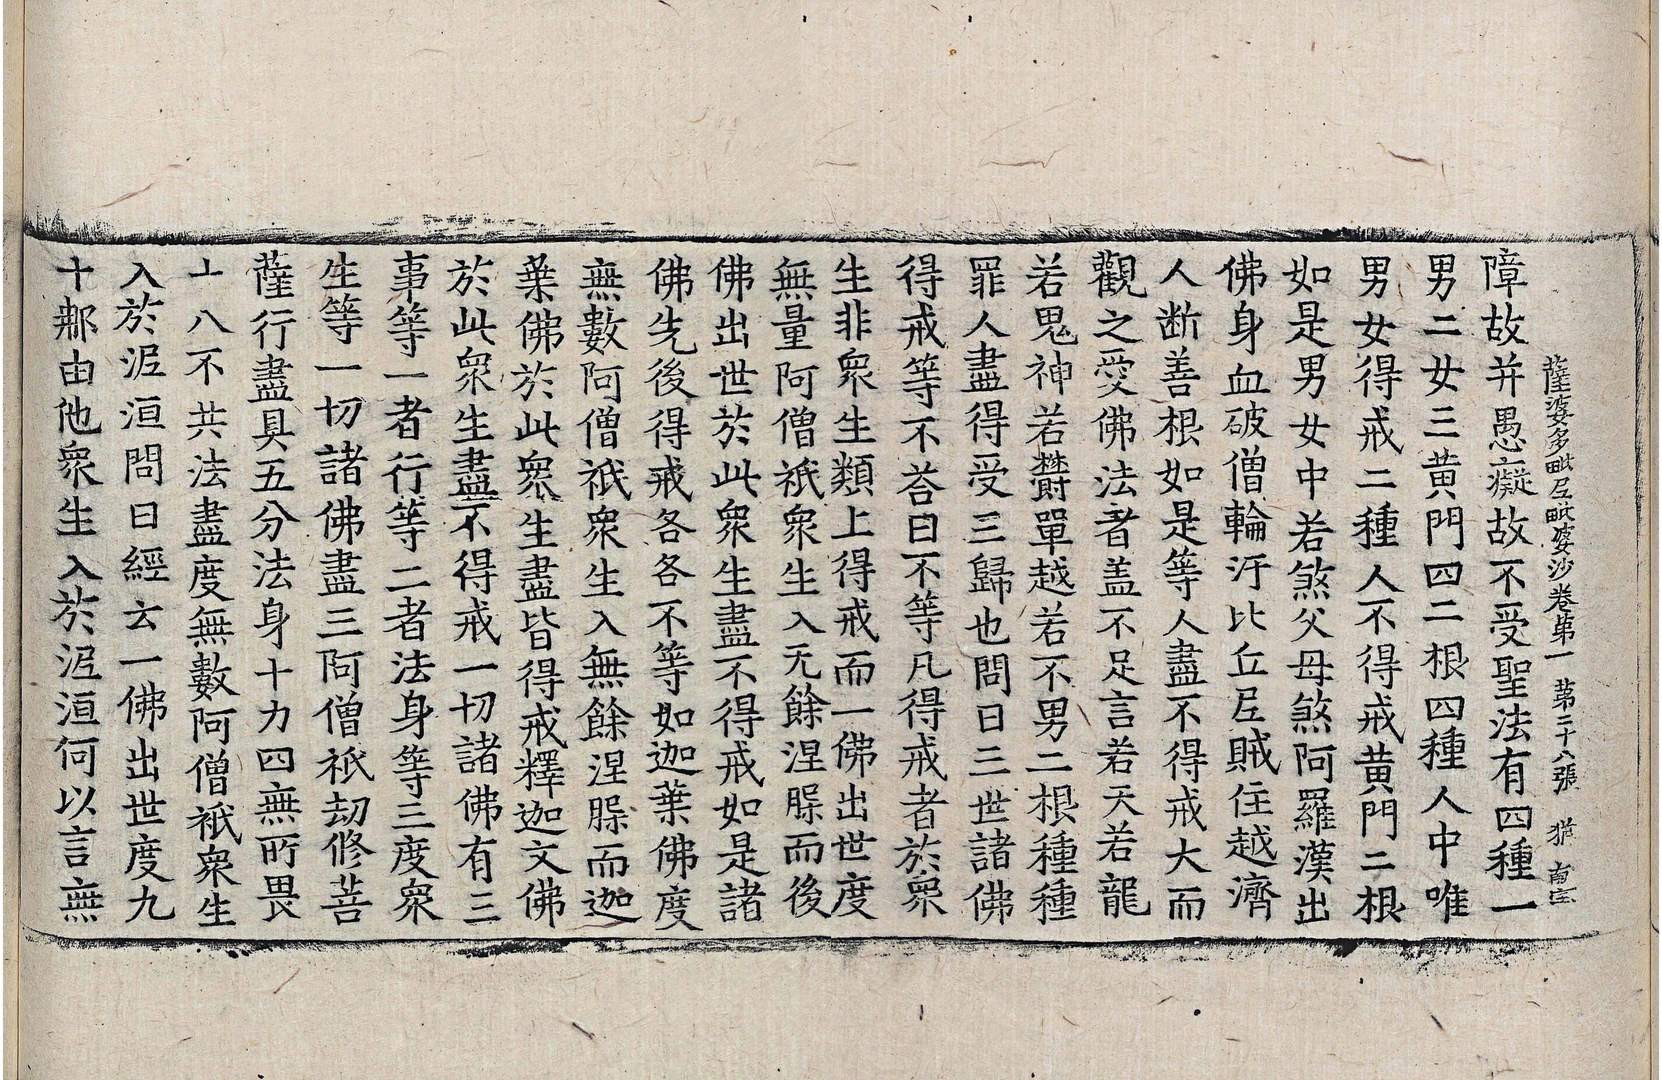 薩婆多毗尼毗婆沙卷第一 第二十六張 猶
障故并愚癡故不受聖法有四種一
男二女三黃門四二根四種人中唯
男女得戒二種人不得戒黃門二根
如是男女中若煞父母煞阿羅漢出
佛身血破僧輪汙比丘尼賊住越濟
人断善根如是等人盡不得戒大而
觀之受佛法者盖不足言若天若龍
若鬼神若欝單越若不男二根種種
罪人盡得受三歸也問曰三世諸佛
得戒等不荅曰不等凡得戒者於衆
生非衆生類上得戒而一佛出世度
無量阿僧祇衆生入无餘涅槃而後
佛出世於此衆生盡不得戒如是諸
佛先後得戒各各不等如迦葉佛度
無數阿僧祇衆生入無餘涅槃而迦
葉佛於此衆生盡皆得戒釋迦文佛
於此衆生盡不得戒一切諸佛有三
事等一者行等二者法身等三度衆
生等一切諸佛盡三阿僧祇劫修菩
薩行盡具五分法身十力四無所畏
十八不共法盡度無數阿僧祇衆生
入於泥洹問曰經云一佛出世度九
十那由他衆生入於泥洹何以言無